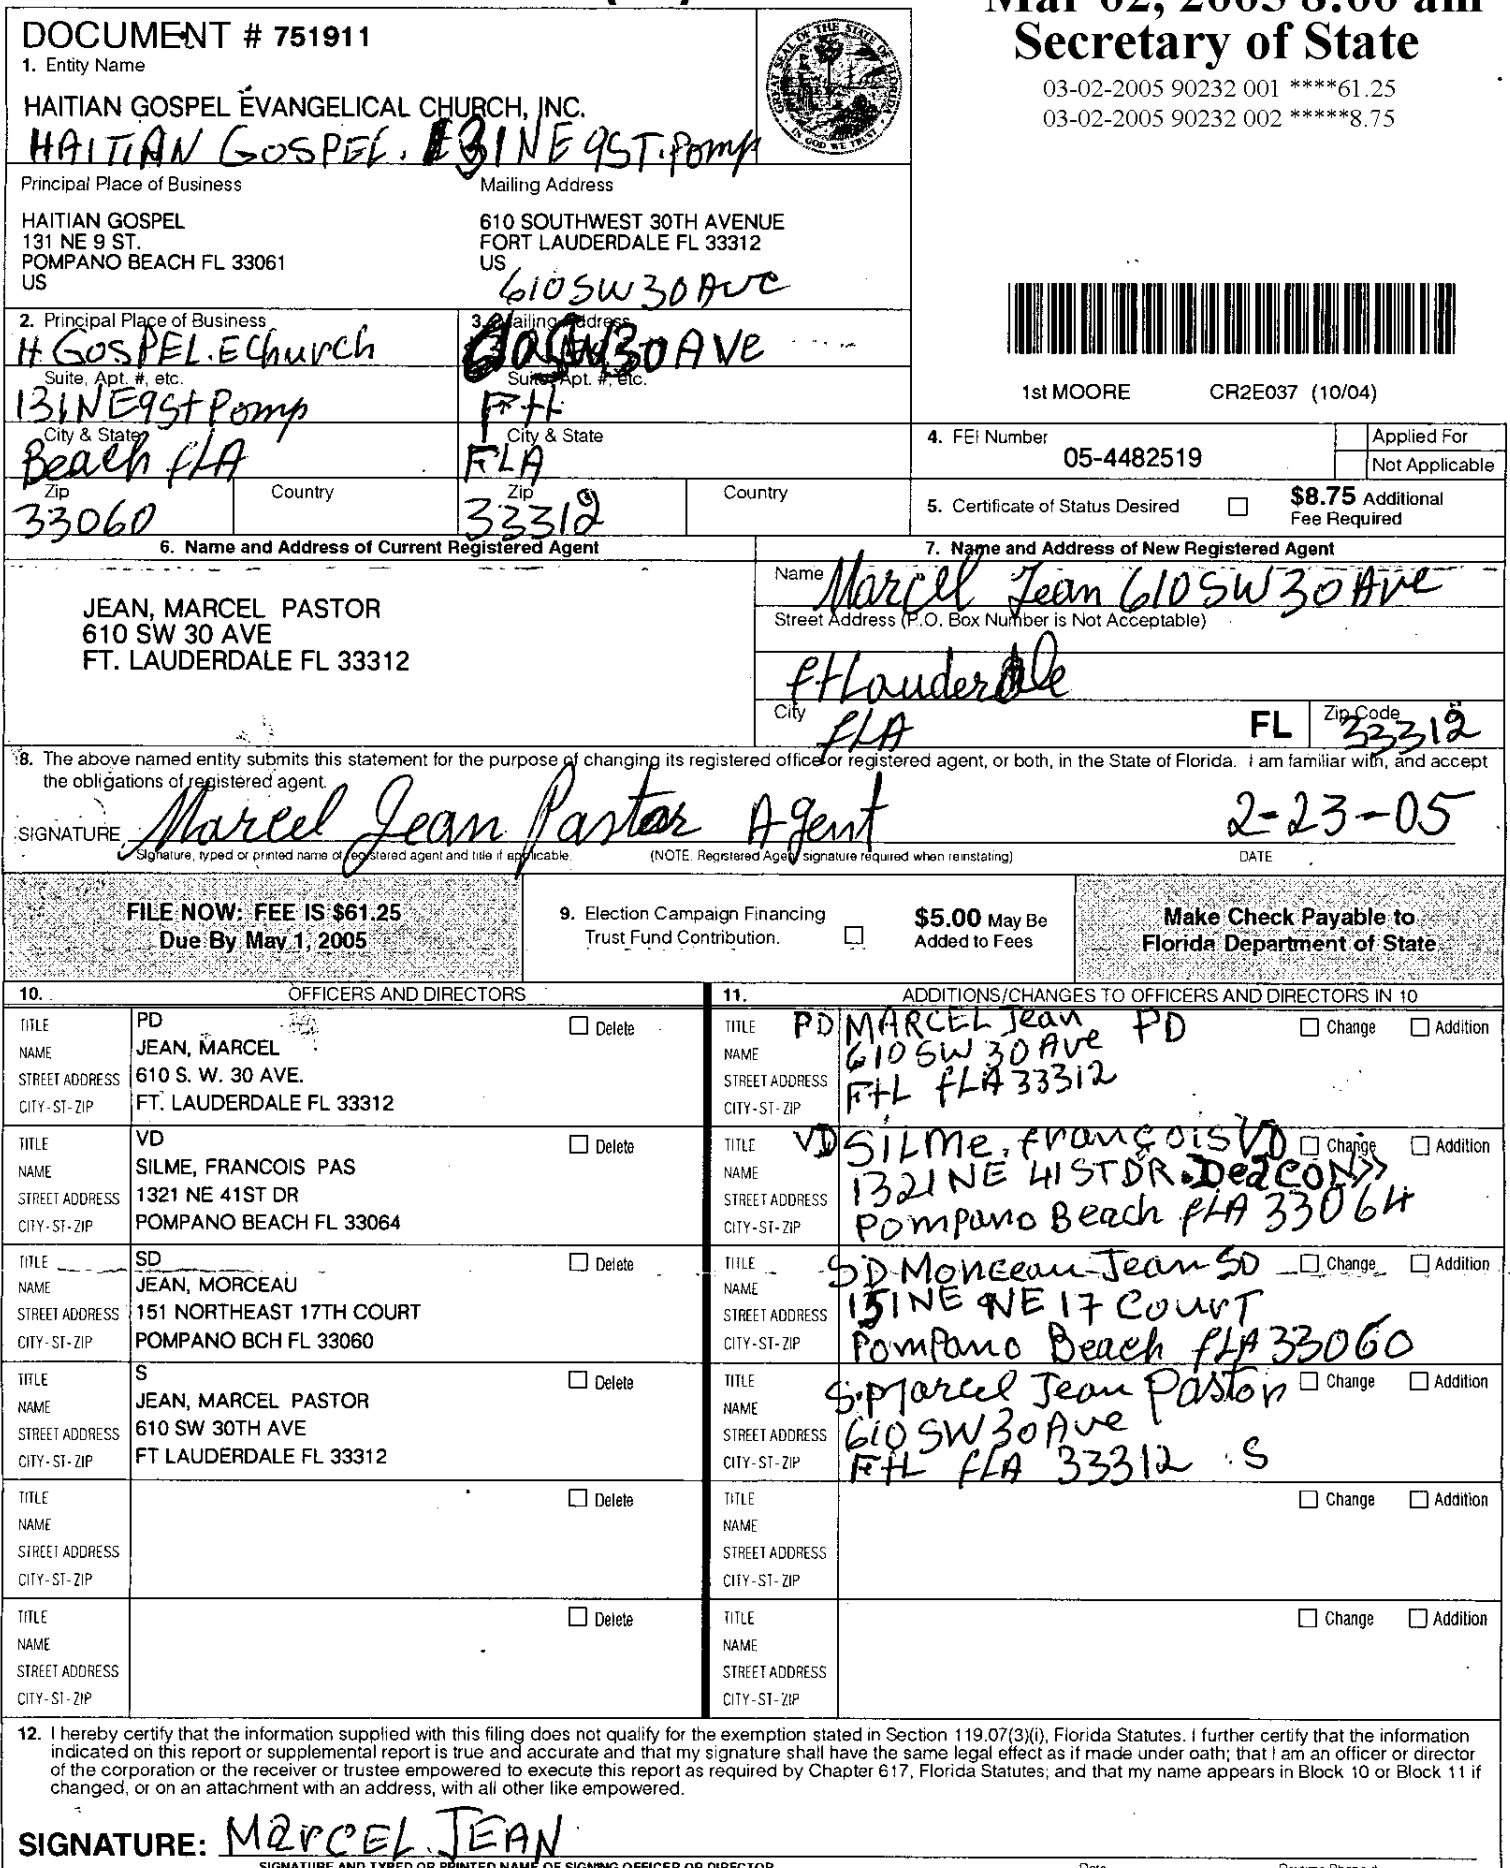 Secretary of State
03-02-2005 90232 001 ****61.25
03-02-2005 90232 002 *****8.75
DOCUMENT # 751911
1. Entity Name
HAITIAN GOSPEL EVANGELICAL CHURCH, INC.
HAITIAN GOSPEL. 131 NE 9ST. Pomp
GREAT SEAL OF THE STATE OF FLORIDA
IN GOD WE TRUST
Principal Place of Business
HAITIAN GOSPEL
131 NE 9 ST.
POMPANO BEACH FL 33061
US
Mailing Address
610 SOUTHWEST 30TH AVENUE
FORT LAUDERDALE FL 33312
US
610 SW 30 AVE
1st MOORE CR2E037 (10/04)
2. Principal Place of Business
H GOSPEL. E Church
Suite, Apt. #, etc.
131 NE 9st Pomp
City & State
Beach fLA
Zip Country
33060
3. Mailing Address
SW 30 AVE
Suite, Apt. #, etc.
FtL
City & State
FLA
Zip Country
33312
4. FEI Number
05-4482519
Applied For
Not Applicable
5. Certificate of Status Desired
$8.75 Additional
Fee Required
6. Name and Address of Current Registered Agent
JEAN, MARCEL PASTOR
610 SW 30 AVE
FT. LAUDERDALE FL 33312
7. Name and Address of New Registered Agent
Name Marcel Jean 610 SW 30 Ave
Street Address (P.O. Box Number is Not Acceptable)
ft Lauderdale
City fLA FL Zip Code 33312
8. The above named entity submits this statement for the purpose of changing its registered office or registered agent, or both, in the State of Florida. I am familiar with, and accept
the obligations of registered agent.
SIGNATURE Marcel Jean Pastor Agent 2-23-05
Signature, typed or printed name of registered agent and title if applicable. (NOTE: Registered Agent signature required when reinstating) DATE
FILE NOW: FEE IS $61.25
Due By May 1, 2005
9. Election Campaign Financing
Trust Fund Contribution.
$5.00 May Be
Added to Fees
Make Check Payable to
Florida Department of State
10. OFFICERS AND DIRECTORS
TITLE PD Delete
NAME JEAN, MARCEL
STREET ADDRESS 610 S. W. 30 AVE.
CITY-ST-ZIP FT. LAUDERDALE FL 33312
TITLE VD Delete
NAME SILME, FRANCOIS PAS
STREET ADDRESS 1321 NE 41ST DR
CITY-ST-ZIP POMPANO BEACH FL 33064
TITLE SD Delete
NAME JEAN, MORCEAU
STREET ADDRESS 151 NORTHEAST 17TH COURT
CITY-ST-ZIP POMPANO BCH FL 33060
TITLE S Delete
NAME JEAN, MARCEL PASTOR
STREET ADDRESS 610 SW 30TH AVE
CITY-ST-ZIP FT LAUDERDALE FL 33312
TITLE Delete
NAME
STREET ADDRESS
CITY-ST-ZIP
TITLE Delete
NAME
STREET ADDRESS
CITY-ST-ZIP
11. ADDITIONS/CHANGES TO OFFICERS AND DIRECTORS IN 10
TITLE PD MARCEL Jean PD Change Addition
NAME 610 SW 30 Ave
STREET ADDRESS FtL fLA 33312
CITY-ST-ZIP
TITLE VD SILMe, françois VD Change Addition
NAME 1321 NE 41 ST DR. DeaCON
STREET ADDRESS
CITY-ST-ZIP Pompano Beach fLA 33064
TITLE SD Monceau Jean SD Change Addition
NAME
STREET ADDRESS 151 NE NE 17 Court
CITY-ST-ZIP Pompano Beach fLA 33060
TITLE S. Marcel Jean Pastor Change Addition
NAME
STREET ADDRESS 610 SW 30 Ave
CITY-ST-ZIP FtL fLA 33312 . S
TITLE Change Addition
NAME
STREET ADDRESS
CITY-ST-ZIP
TITLE Change Addition
NAME
STREET ADDRESS
CITY-ST-ZIP
12. I hereby certify that the information supplied with this filing does not qualify for the exemption stated in Section 119.07(3)(i), Florida Statutes. I further certify that the information
indicated on this report or supplemental report is true and accurate and that my signature shall have the same legal effect as if made under oath; that I am an officer or director
of the corporation or the receiver or trustee empowered to execute this report as required by Chapter 617, Florida Statutes; and that my name appears in Block 10 or Block 11 if
changed, or on an attachment with an address, with all other like empowered.
SIGNATURE: MARCEL. JEAN
SIGNATURE AND TYPED OR PRINTED NAME OF SIGNING OFFICER OR DIRECTOR